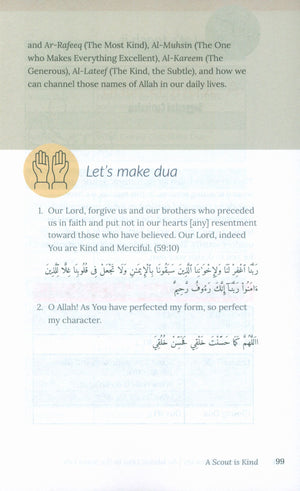 and Ar-Rafeeq (The Most Kind), Al-Muhsin (The One
who Makes Everything Excellent), Al-Kareem (The
Generous), Al-Lateef (The Kind, the Subtle), and how we
can channel those names of Allah in our daily lives.
Let's make dua
1. Our Lord, forgive us and our brothers who preceded
us in faith and put not in our hearts [any] resentment
toward those who have believed. Our Lord, indeed
You are Kind and Merciful. (59:10)
رَبَّنَا ٱغْفِرْ لَنَا وَلِإِخْوَٰنِنَا ٱلَّذِينَ سَبَقُونَا بِٱلْإِيمَٰنِ وَلَا تَجْعَلْ فِى قُلُوبِنَا غِلًّا لِّلَّذِينَ
ءَامَنُوا۟ رَبَّنَآ إِنَّكَ رَءُوفٌ رَّحِيمٌ
2. O Allah! As You have perfected my form, so perfect
my character.
اَللَّهُمَّ كَمَا حَسَّنْتَ خَلْقِي فَحَسِّنْ خُلُقِيْ
A Scout is Kind 99